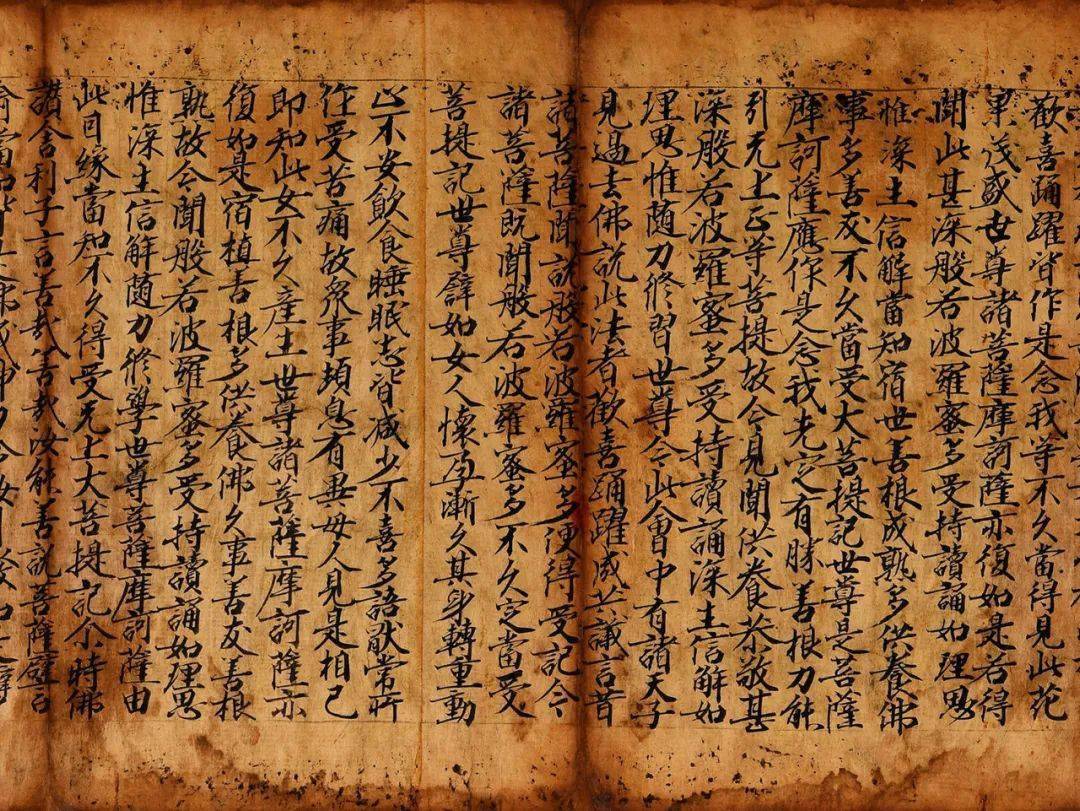 歡喜踊躍皆作是念我等不久當得見此花
果茂盛世尊諸菩薩摩訶薩亦復如是若得
聞此甚深般若波羅蜜多受持讀誦如理思
惟深生信解當知宿世善根成熟多供養佛
事多善友不久當受大菩提記世尊是菩薩
摩訶薩應作是念我先定有勝善根力能
引无上正等菩提故今見聞供養恭敬甚
深般若波羅蜜多受持讀誦深生信解如
理思惟随力修習世尊今此會中有諸天子
見過去佛說此法者歡喜踊躍咸共議言昔
諸菩薩聞說般若波羅蜜多便得受記今
諸菩薩既聞般若波羅蜜多不久定當受
菩提記世尊譬如女人懷孕漸久其身轉重動
止不安飲食睡眠悉皆减少不喜多語猒常所
作受苦痛故衆事頓息有異母人見是相已
即知此女不久産生世尊諸菩薩摩訶薩亦
復如是宿植善根多供養佛久事善友善根
熟故今聞般若波羅蜜多受持讀誦如理思
惟深生信解随力修學世尊菩薩摩訶薩由
此因緣當知不久得受无上大菩提記尒時佛
讃舍利子言善哉善哉汝能善說菩薩譬